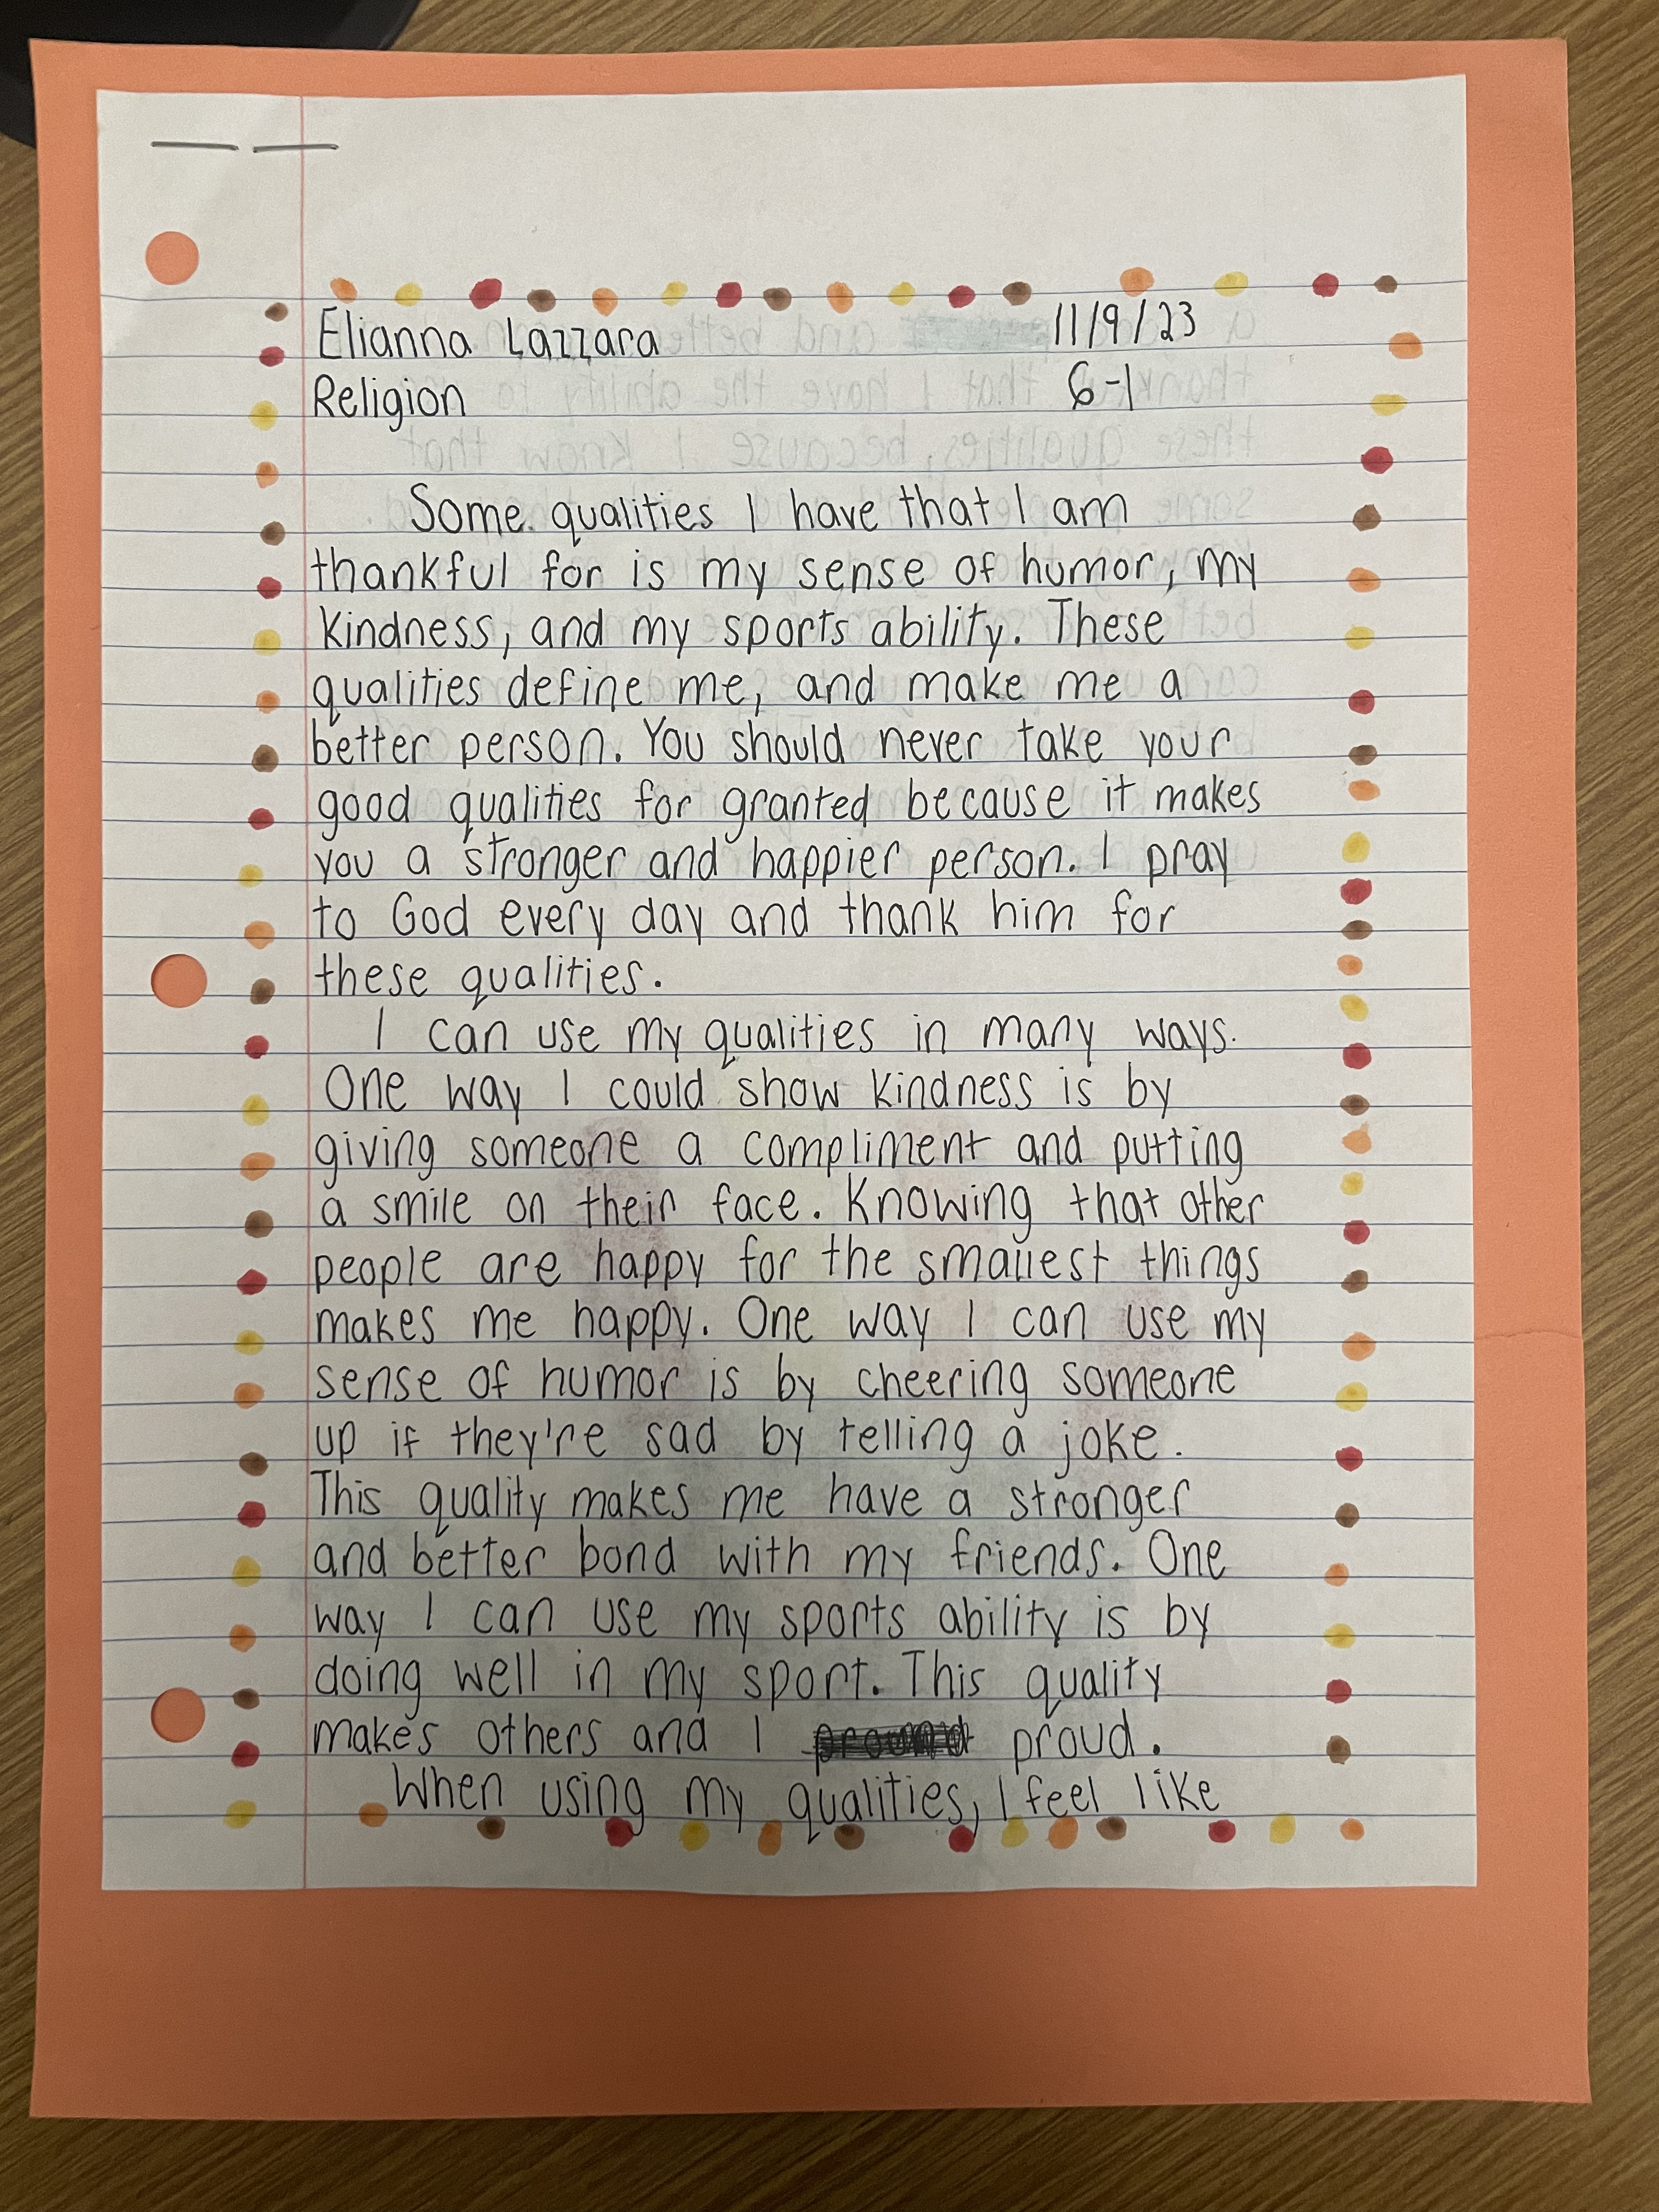 Elianna Lazzara 11/9/23
Religion 6-1
Some qualities I have that I am
thankful for is my sense of humor, my
kindness, and my sports ability. These
qualities define me, and make me a
better person. You should never take your
good qualities for granted because it makes
you a stronger and happier person. I pray
to God every day and thank him for
these qualities.
I can use my qualities in many ways.
One way I could show kindness is by
giving someone a compliment and putting
a smile on their face. Knowing that other
people are happy for the smallest things
makes me happy. One way I can use my
sense of humor is by cheering someone
up if they're sad by telling a joke.
This quality makes me have a stronger
and better bond with my friends. One
way I can use my sports ability is by
doing well in my sport. This quality
makes others and I proud.
When using my qualities, I feel like